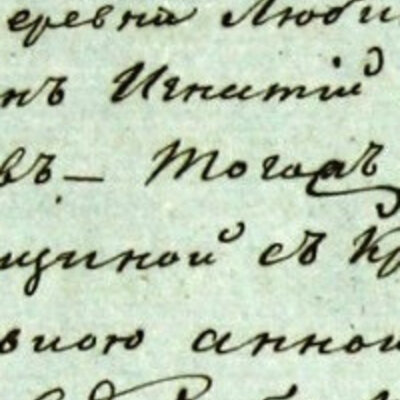 еревни Люби
нъ Игнатій
въ – Тогожъ
щиной съ Кр
вною анной